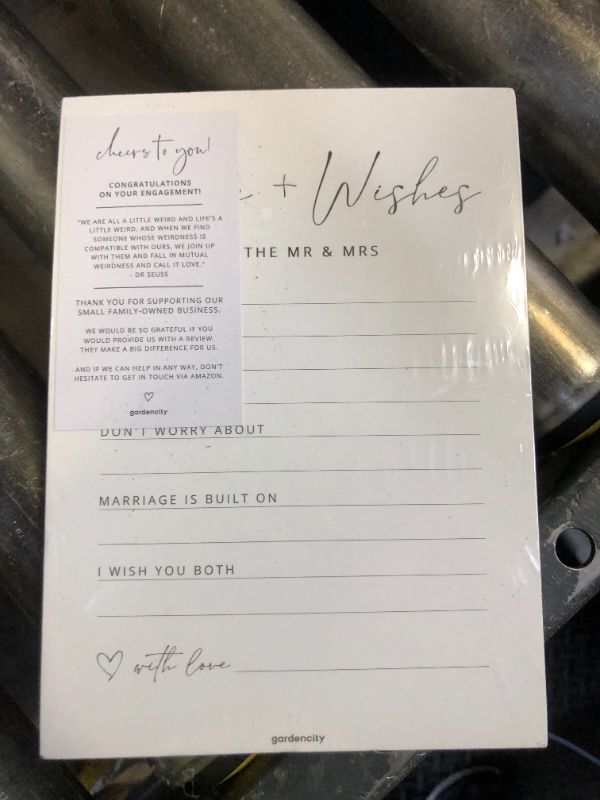 cheers to you!
CONGRATULATIONS
ON YOUR ENGAGEMENT!
"WE ARE ALL A LITTLE WEIRD AND LIFE'S A
LITTLE WEIRD, AND WHEN WE FIND
SOMEONE WHOSE WEIRDNESS IS
COMPATIBLE WITH OURS, WE JOIN UP
WITH THEM AND FALL IN MUTUAL
WEIRDNESS AND CALL IT LOVE."
- DR SEUSS
THANK YOU FOR SUPPORTING OUR
SMALL FAMILY-OWNED BUSINESS.
WE WOULD BE SO GRATEFUL IF YOU
WOULD PROVIDE US WITH A REVIEW.
THEY MAKE A BIG DIFFERENCE FOR US.
AND IF WE CAN HELP IN ANY WAY, DON'T
HESITATE TO GET IN TOUCH VIA AMAZON.
gardencity
+ Wishes
THE MR & MRS
DON'T WORRY ABOUT
MARRIAGE IS BUILT ON
I WISH YOU BOTH
with love
gardencity